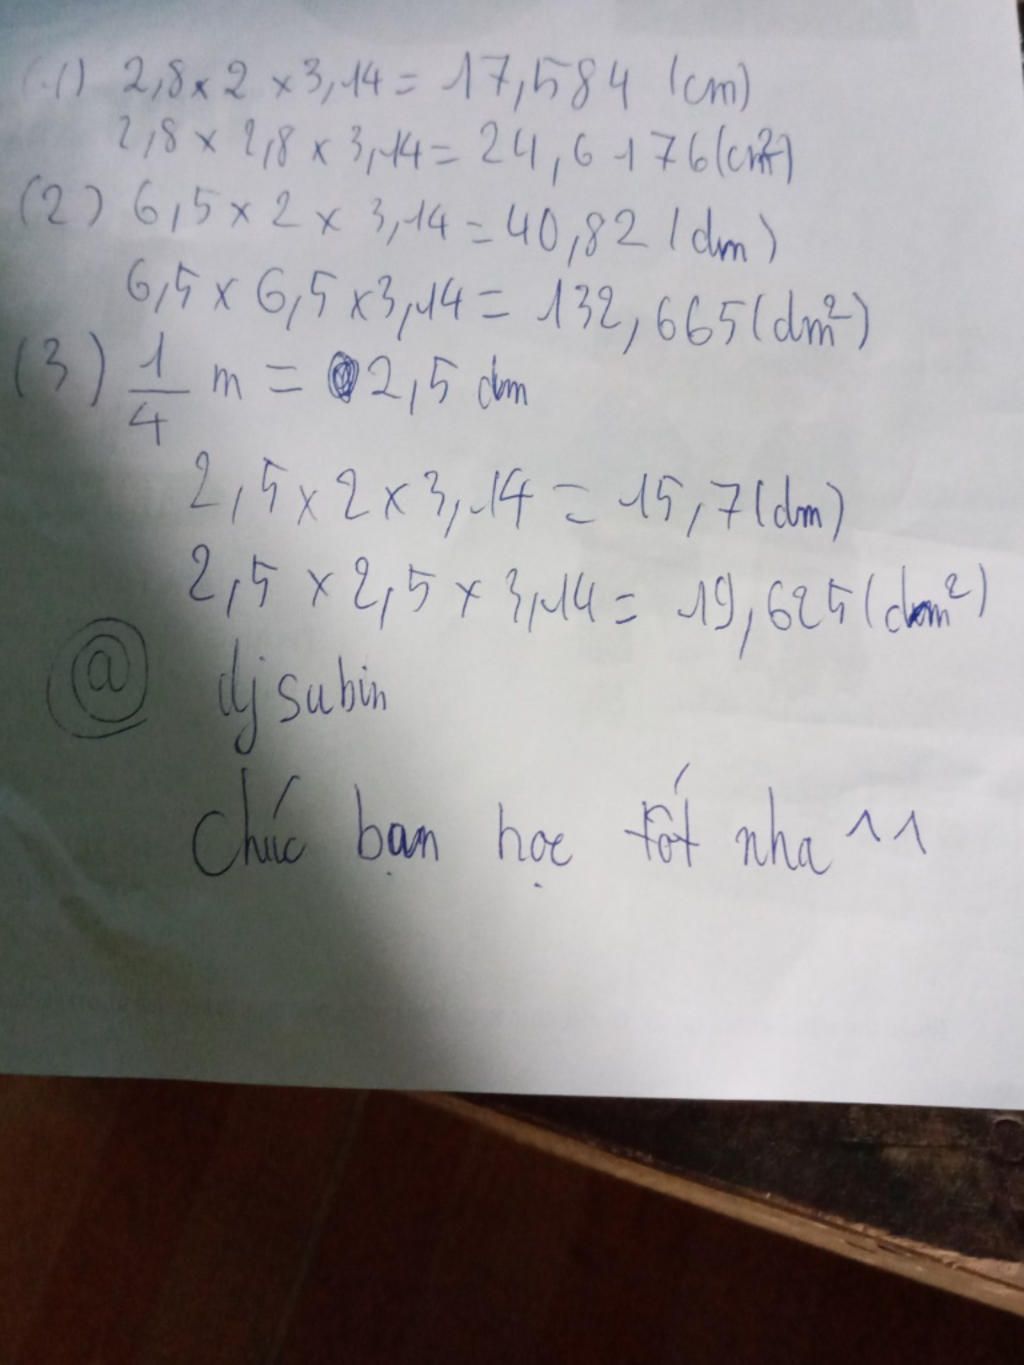 (1) 2,8 × 2 × 3,14 = 17,584 (cm)
2,8 × 2,8 × 3,14 = 24,6176 (cm²)
(2) 6,5 × 2 × 3,14 = 40,82 (dm)
6,5 × 6,5 × 3,14 = 132,665 (dm²)
(3) 1/4 m = 2,5 dm
2,5 × 2 × 3,14 = 15,7 (dm)
2,5 × 2,5 × 3,14 = 19,625 (dm²)
@ djsubin
Chúc bạn học tốt nha ^^